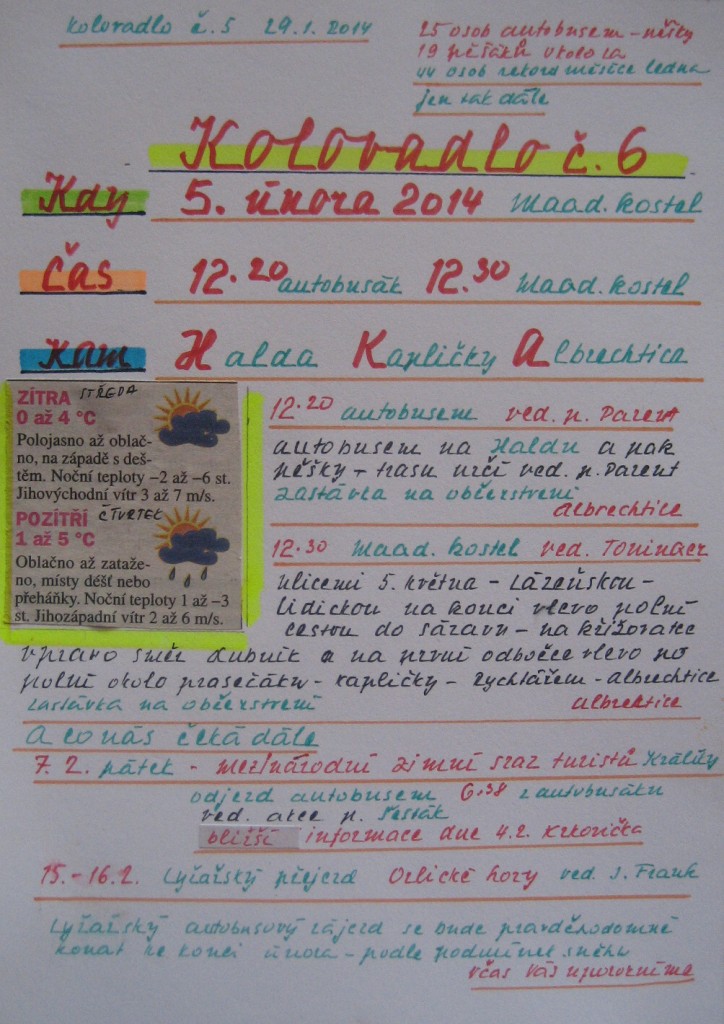 Kolovadlo č. 5 29.1. 2014
25 osob autobusem - pěšky
19 pěšáků okolo ZA
44 osob rekord měsíce ledna
jen tak dále
Kolovadlo č. 6
Kdy 5. února 2014 Maad. kostel
Čas 12.20 autobusák 12.30 Maad. kostel
Kam Halda Kapličky Albrechtice
ZÍTRA STŘEDA
0 až 4 °C
Polojasno až oblač-
no, na západě s deš-
těm. Noční teploty −2 až −6 st.
Jihovýchodní vítr 3 až 7 m/s.
POZÍTŘÍ ČTVRTEK
1 až 5 °C
Oblačno až zataže-
no, místy déšť nebo
přeháňky. Noční teploty 1 až −3
st. Jihozápadní vítr 2 až 6 m/s.
12.20 autobusem ved. p. Parent
autobusem na Haldu a pak
pěšky - trasu určí ved. p. Parent
zastávka na občerstvení
Albrechtice
12.30 Maad. kostel ved.
ulicemi 5. května - Lázeňskou -
Lidickou na konci vlevo polní
cestou do Sázavy - na křižovatce
vpravo směr Lubník a na první odbočce vlevo po
polní okolo prasečáku - kapličky - Rychtářem - Albrechtice
zastávka na občerstvení Albrechtice
A co nás čeká dále
7. 2. pátek - mezinárodní zimní sraz turistů Králíky
odjezd autobusem 6,38 z autobusáku
ved. akce p. Šesták
bližší informace dne 4.2. Krkovička
15.-16.2. Lyžařský přejezd Orlické hory ved. J. Frank
Lyžařský autobusový zájezd se bude pravděpodobně
konat ke konci února - podle podmínek sněhu
včas vás upozorníme